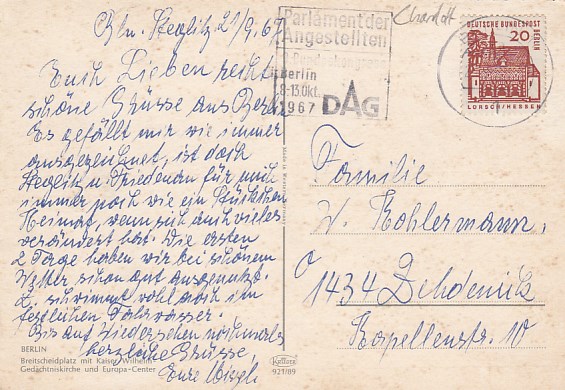 Bln. Steglitz 21/9.67
Euch Lieben recht
schöne Grüsse aus Berlin
Es gefällt mir wie immer
ausgezeichnet, ist doch
Steglitz u. Friedenau für mich
immer noch wie ein Stückchen
Heimat, wenn sich auch vieles
verändert hat. Die ersten
2 Tage haben wir bei schönem
Wetter schon gut ausgenutzt.
schwimmt wohl noch im
festlichen Fahrwasser.
Bis auf Wiedersehen nochmals
herzliche Grüsse,
Eure
BERLIN
Breitscheidplatz mit Kaiser Wilhelm
Gedächtniskirche und Europa-Center
Krüger
921/89
Parlament der
Angestellten
Berlin
8-13.Okt.
1967 DAG
DEUTSCHE BUNDESPOST
BERLIN
20
LORSCH/HESSEN
Familie
W. Kohlermann,
1434 Zehdenick
Kapellenstr. 10